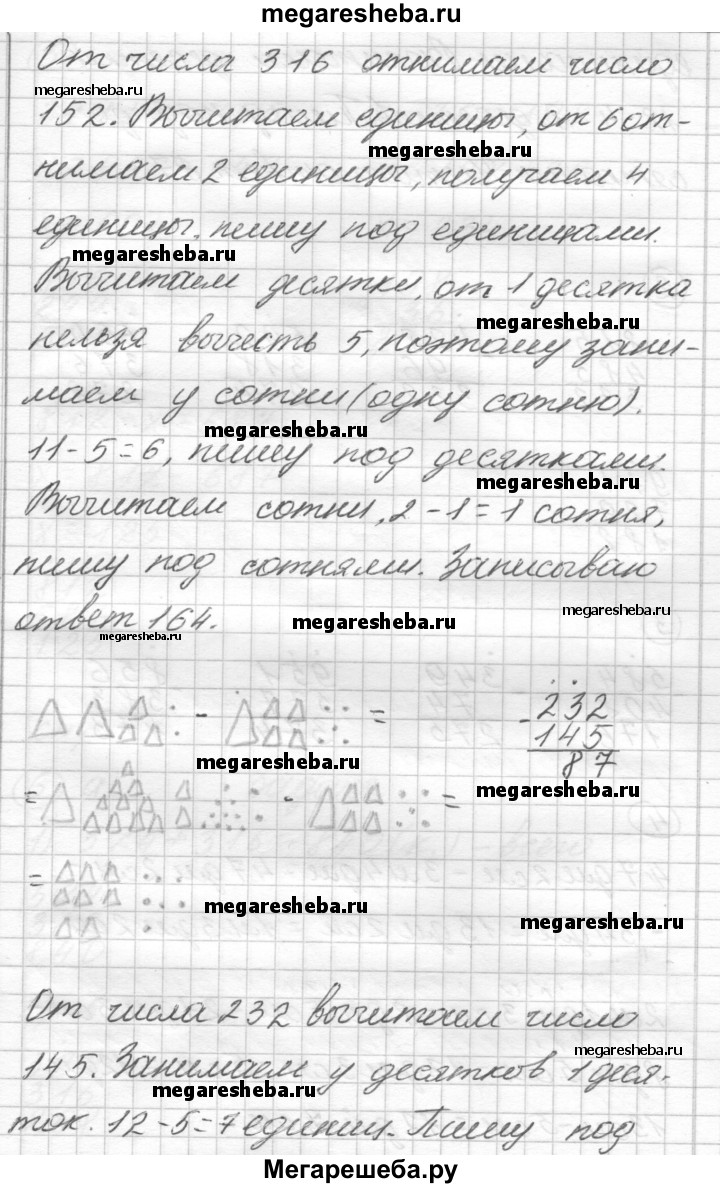 megaresheba.ru
От числа 316 отнимаем число
megaresheba.ru
152. Вычитаем единицы, от 6 от-
megaresheba.ru
нимаем 2 единицы, получаем 4
единицы. пишу под единицами.
megaresheba.ru
Вычитаем десятки, от 1 десятка
megaresheba.ru
нельзя вычесть 5, поэтому зани-
маем у сотни (одну сотню).
megaresheba.ru
11-5=6, пишу под десятками.
megaresheba.ru
Вычитаем сотни, 2-1=1 сотня,
пишу под сотнями. Записываю
ответ 164.
megaresheba.ru
megaresheba.ru
megaresheba.ru
- = -232
145
87
megaresheba.ru
megaresheba.ru
= - =
=
megaresheba.ru
megaresheba.ru
От числа 232 вычитаем число
megaresheba.ru
145. Занимаем у десятков 1 деся-
megaresheba.ru
ток. 12-5=7 единиц. Пишу под
Мегарешеба.ру